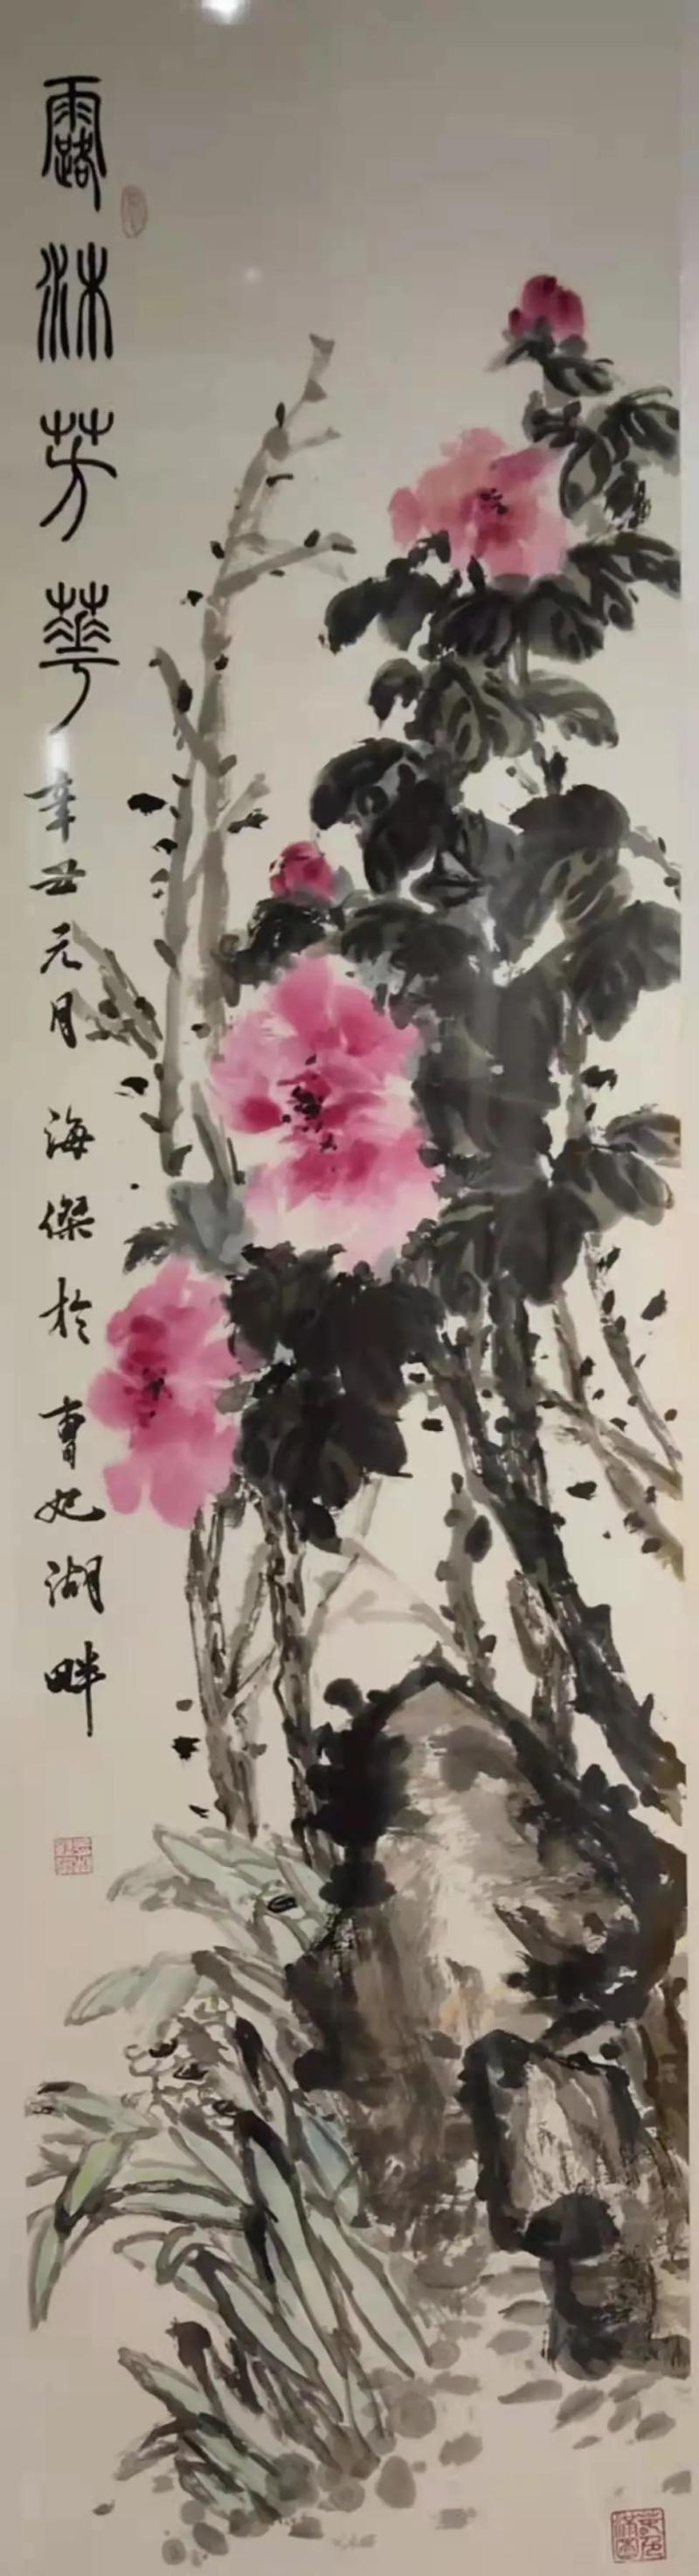 露沐芳華
辛丑元月 海傑於 曹妃湖畔